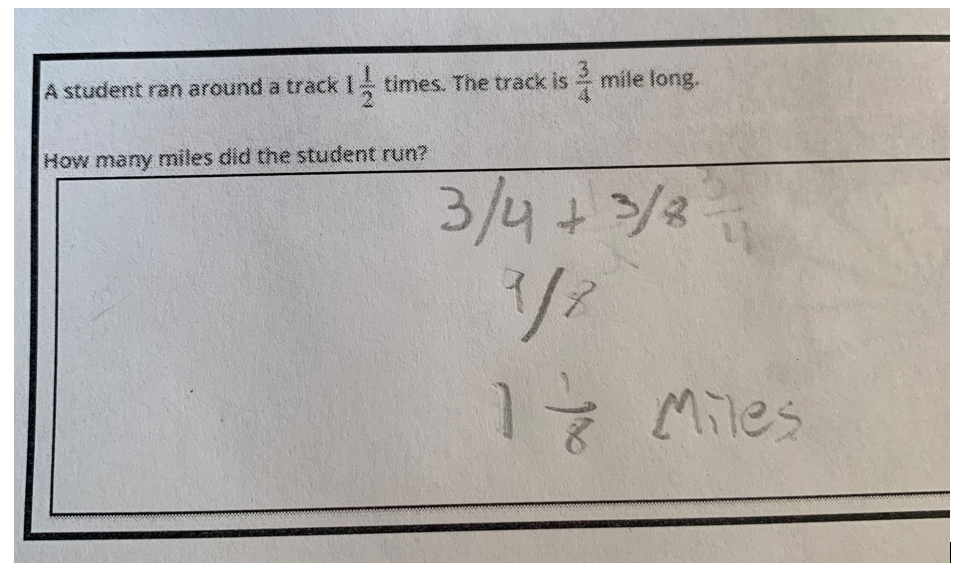 A student ran around a track 1 1/2 times. The track is 3/4 mile long.
How many miles did the student run?
3/4 + 3/8
9/8
1 1/8 Miles